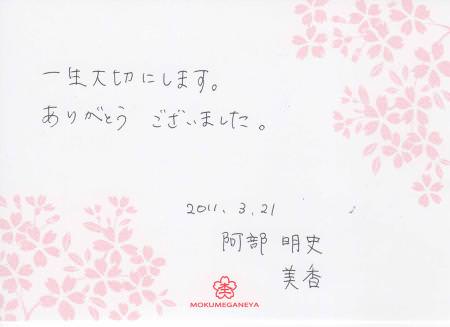 一生大切にします。
ありがとう ございました。
2011. 3. 21
阿部 明史
美香
MOKUMEGANEYA